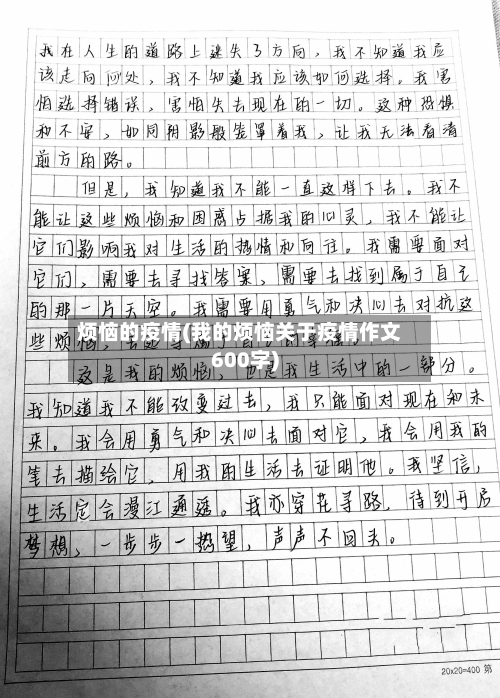 我在人生的道路上迷失了方向，我不知道我应
该走向何处，我不知道我应该如何选择。我害
怕选择错误，害怕失去现在的一切。这种恐惧
和不安，如同阴影般笼罩着我，让我无法看清
前方的路。
但是，我知道我不能一直这样下去。我不
能让这些烦恼和困惑占据我的心灵，我不能让
它们影响我对生活的热情和向往。我需要面对
它们，需要去寻找答案，需要去找到属于自己
的那一片天空。我需要用勇气和决心去对抗这
些烦恼，去
烦恼的疫情(我的烦恼关于疫情作文
600字)
这是我的烦恼，也是我生活中的一部分。
我知道我不能改变过去，我只能面对现在和未
来。我会用勇气和决心去面对它，我会用我的
笔去描绘它，用我的生活去证明他。我坚信，
生活定会漫江通遥。我亦穿花寻路，待到开启
梦想，一步步一热望，声声不回头。
20x20=400 第